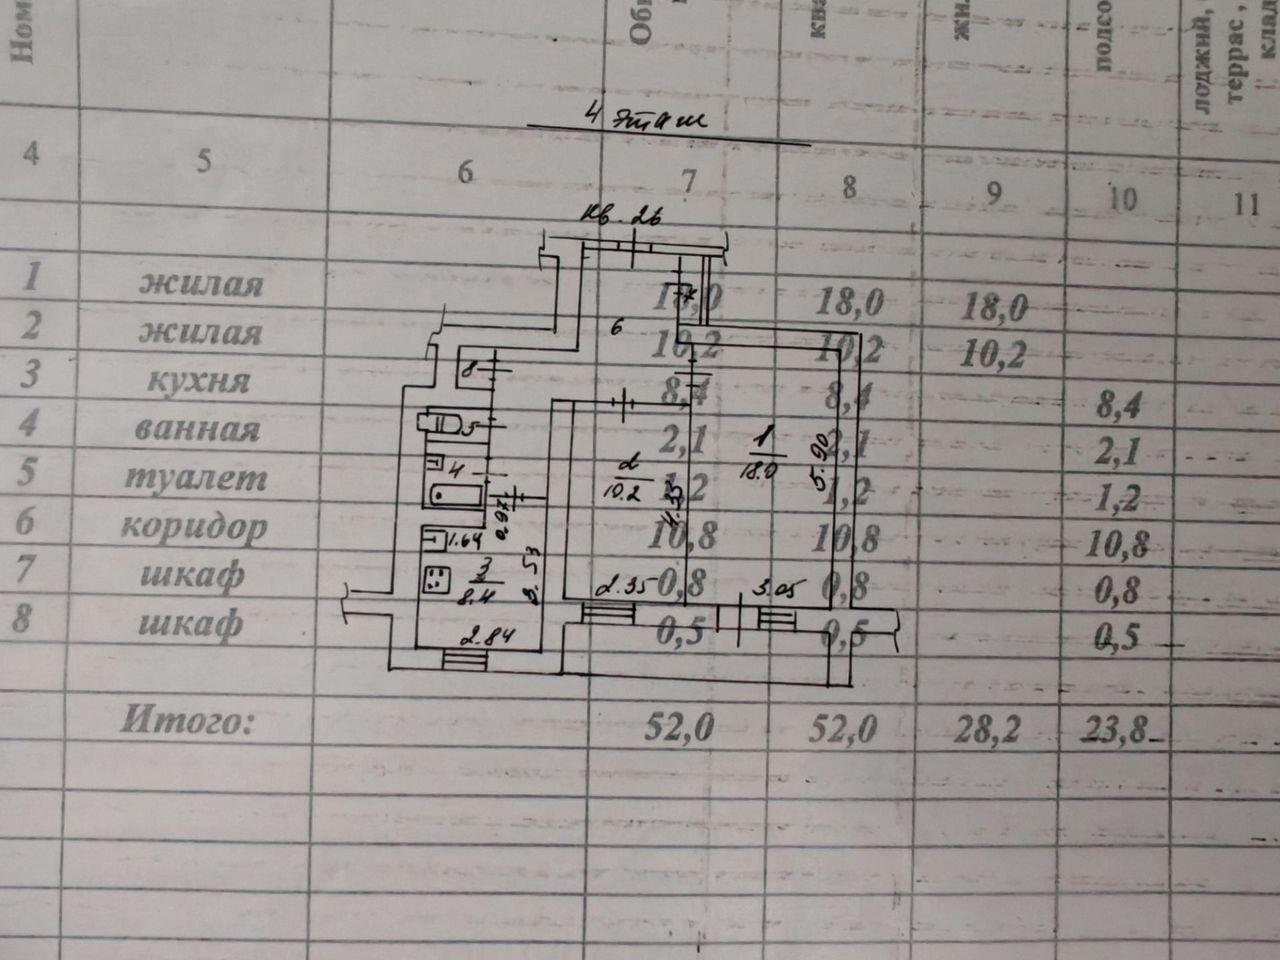 Ном
Обі
ква
жил
подсо
лоджий,
террас,
клад
4 этаж
4 5 6 7 8 9 10 11
кв. 26
1 жилая 18,0 18,0 18,0
2 жилая 10,2 10,2 10,2
3 кухня 8,4 8,4 8,4
4 ванная 2,1 2,1 2,1
5 туалет 1,2 1,2 1,2
6 коридор 10,8 10,8 10,8
7 шкаф 0,8 0,8 0,8
8 шкаф 0,5 0,5 0,5
Итого: 52,0 52,0 28,2 23,8
7
6
8
5
4
1
18.0
5.90
2
10.2
4.35
0.97
1.64
3
8.4
2.35
3.05
2.84